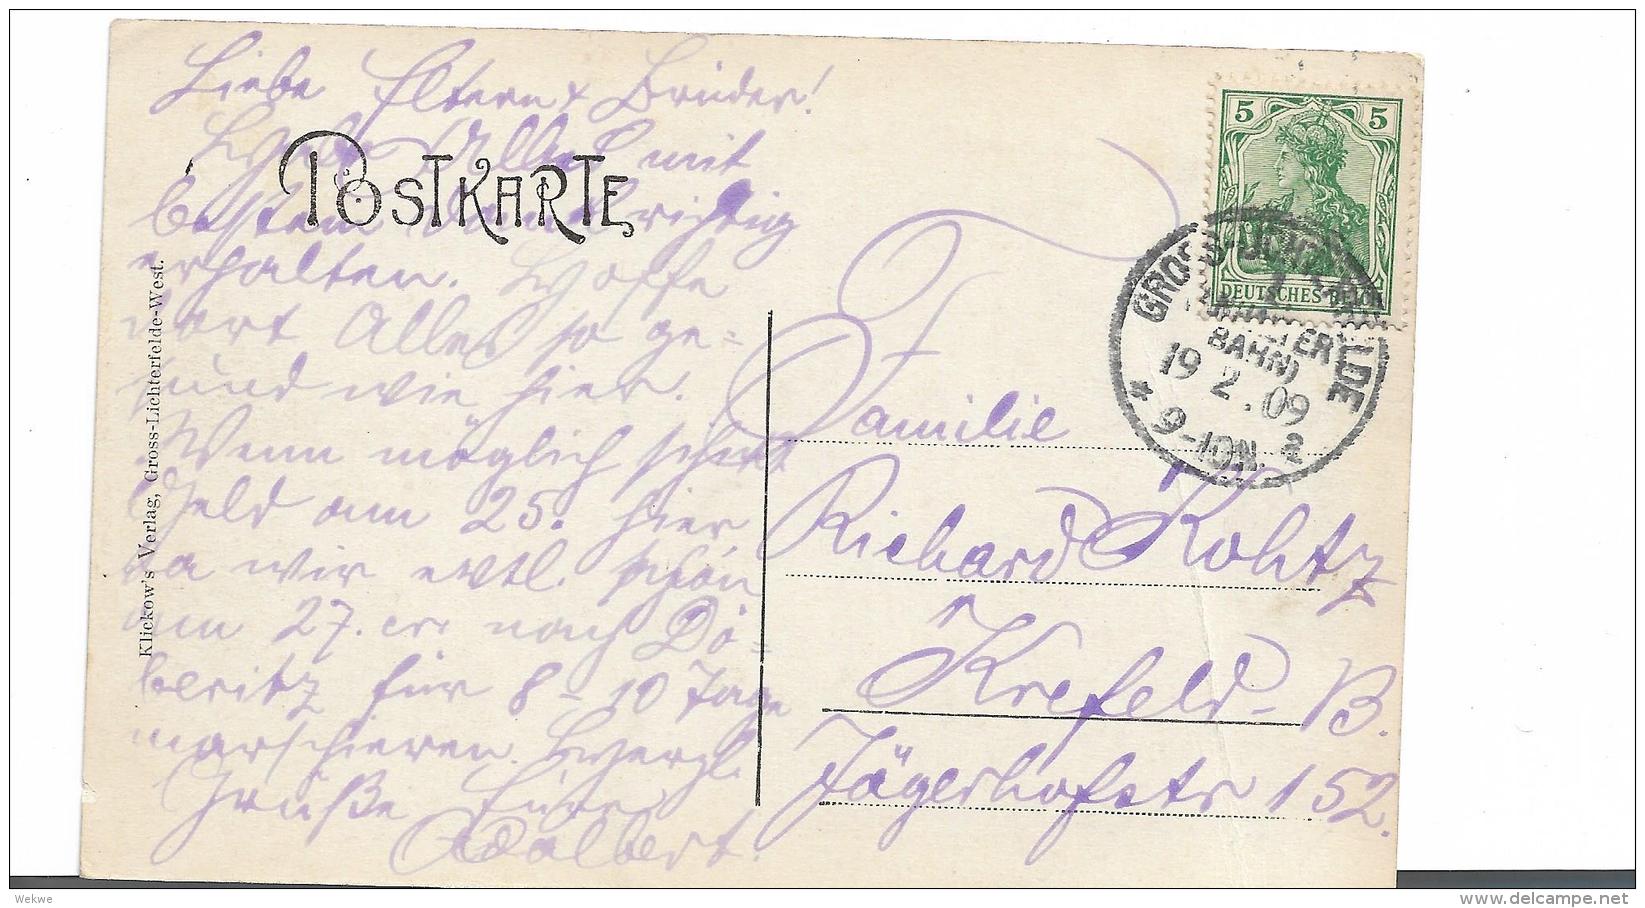 Liebe Eltern & Brüder!
Habe Alles mit
bestem Dank richtig
erhalten. Hoffe
dort Alles so ge-
sund wie hier.
Wenn möglich schickt
Geld am 25. hier
da wir evtl. schon
am 27. cr. nach Dö-
beritz für 8-10 Tage
marschieren. Herzl.
Grüße Euer
Adalbert.
POSTKARTE
Klickow's Verlag, Gross-Lichterfelde-West.
5 5
DEUTSCHES REICH
GROSS-LICHTERFELDE
BAHN)
19 2.09
* 9-10N. a
Familie
Richard Kohtz
Krefeld-B.
Jägerhofstr 152.
Wekwe
delcampe.net